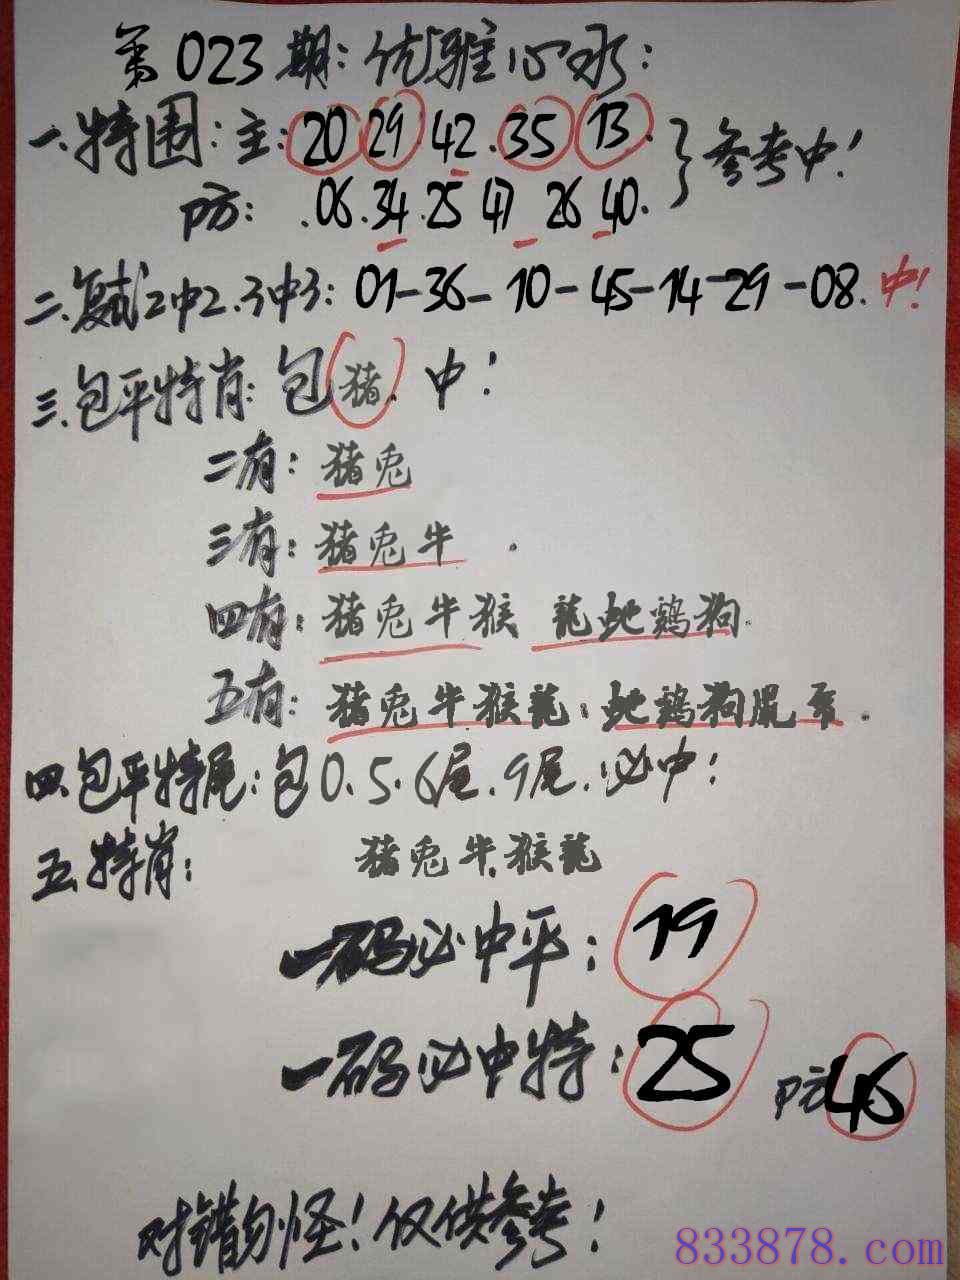 第023期:优雅心水:
一.特围:主:20 29.42.35 13.
防:.06.34.25 47 26 40.
参考中!
二.复试2中2.3中3:01-36-10-45-14-29-08.中!
三.包平特肖:包猪.中!
二有:猪兔
三有:猪兔牛.
四有:猪兔牛猴 龍蛇鷄狗.
五有:猪兔牛猴龍.蛇鷄狗鼠.
四.包平特尾:包0.5.6尾.9尾.必中!
五.特肖:猪兔牛.猴龍
一码必中平:19
一码必中特:25 防46
对错勿怪!仅供参考!
833878.com